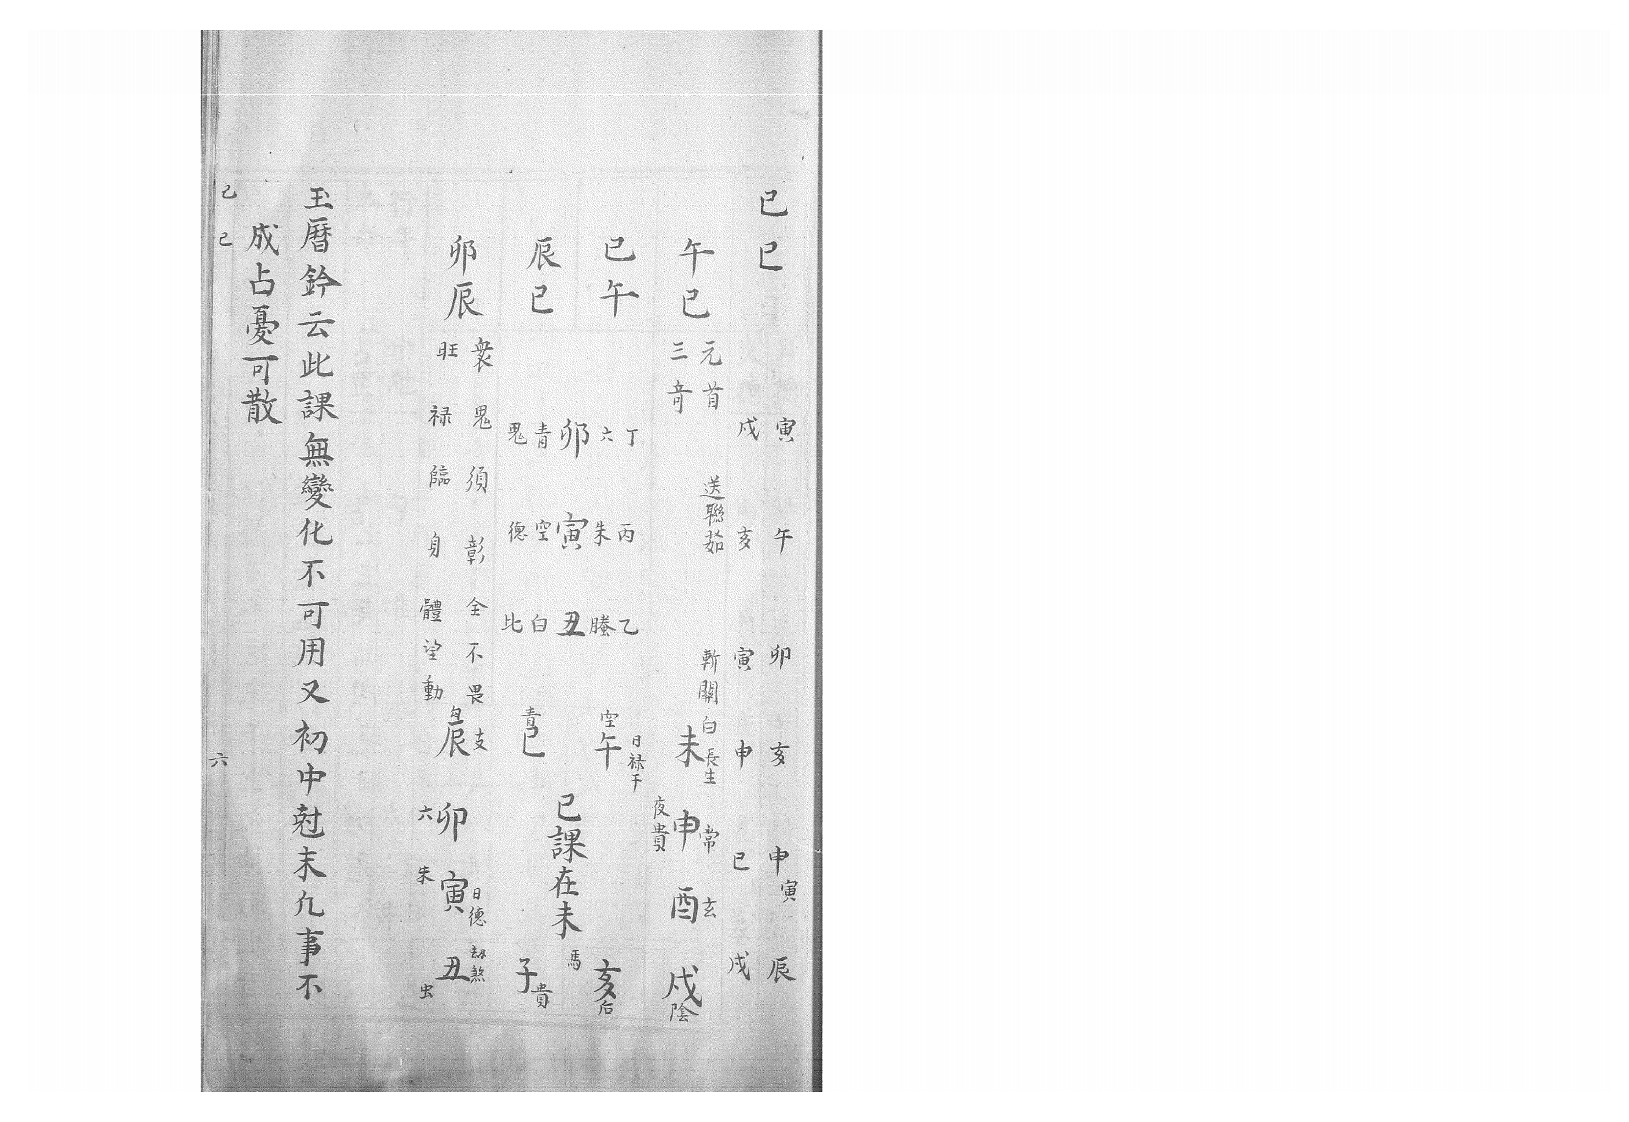 己巳
寅 午 卯 亥 申 寅 辰
戌 亥 寅 申 巳 戌
午己
元首
三奇
送聯茹
斬關
巳午
辰巳
卯辰
丁 六 卯 青 鬼
丙 朱 寅 空 德
乙 螣 丑 白 比
眾鬼須彰全不畏
旺祿臨身體望動
白 未 長生
常 申 夜貴
玄 酉
戌 陰
空 午 日祿干
亥 后
馬
青 巳
子 貴
己課在未
辰 支
六 卯
朱 寅 日德
丑 劫煞
虫
玉曆鈐云此課無變化不可用又初中尅末凢事不
成占憂可散
己 巳 六